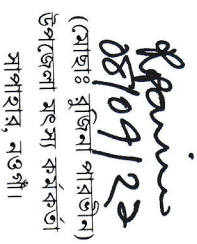 (মোছাঃ রুজিনা পারভীন)
উপজেলা মৎস্য কর্মকর্তা
সাপাহার, নওগাঁ।